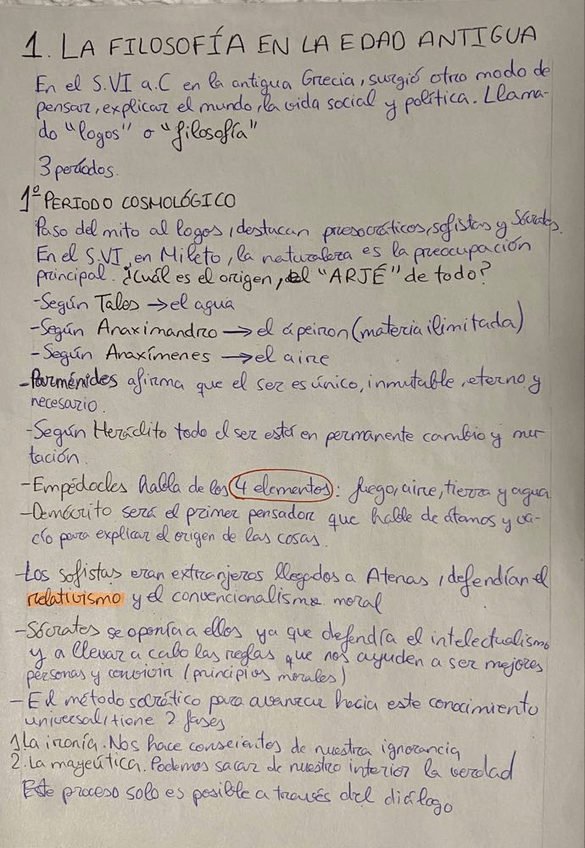 1. LA FILOSOFÍA EN LA EDAD ANTIGUA
En el S.VI a.C en la antigua Grecia, surgió otro modo de
pensar, explicar el mundo, la vida social y política. Llama-
do "logos" o "filosofía"
3 períodos.
1º PERIODO COSMOLÓGICO
Paso del mito al logos, destacan presocráticos, sofistas y Sócrates.
En el S.VI, en Mileto, la naturaleza es la preocupación
principal. ¿Cuál es el origen, el "ARJÉ" de todo?
-Según Tales → el agua
-Según Anaximandro → el ápeiron (materia ilimitada)
-Según Anaxímenes → el aire
-Parménides afirma que el ser es único, inmutable, eterno y
necesario.
-Según Heráclito todo el ser está en permanente cambio y mu-
tación.
-Empédocles habla de los 4 elementos: fuego, aire, tierra y agua
-Demócrito será el primer pensador que hable de átomos y va-
cío para explicar el origen de las cosas.
-Los sofistas eran extranjeros llegados a Atenas, defendían el
relativismo y el convencionalismo moral
-Sócrates se oponía a ellos ya que defendía el intelectualismo
y a llevar a cabo las reglas que nos ayuden a ser mejores
personas y convivir (principios morales)
- El método socrático para avanzar hacia este conocimiento
universal, tiene 2 fases
1.La ironía. Nos hace conscientes de nuestra ignorancia
2.La mayéutica. Podemos sacar de nuestro interior la verdad
Este proceso solo es posible a través del diálogo